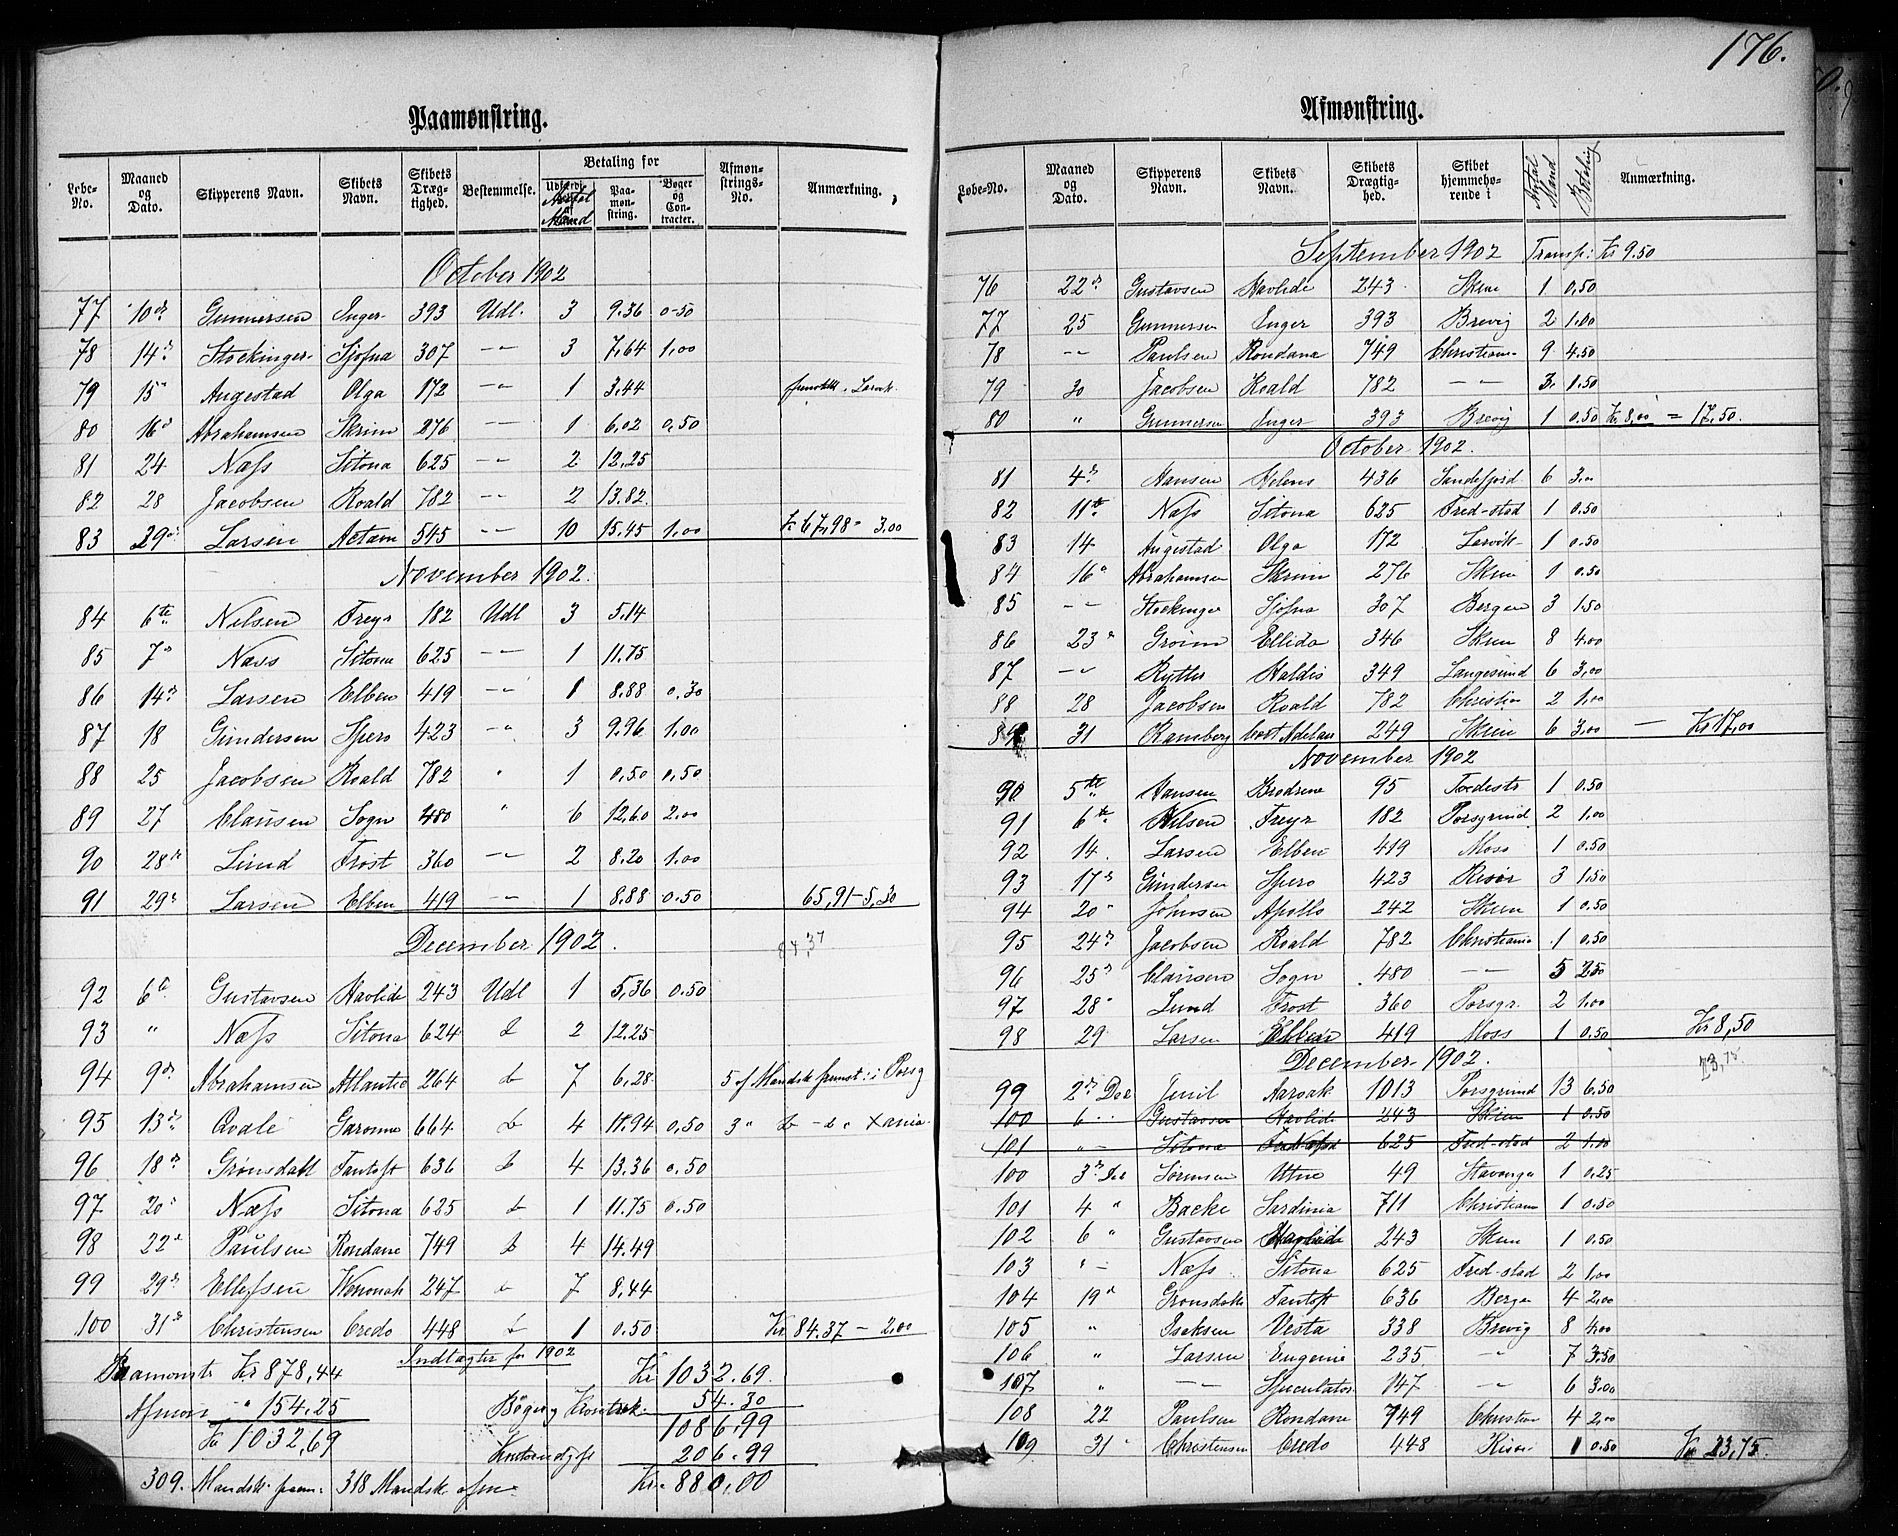 176.
Paamønstring.
Løbe-No. Maaned og Dato. Skipperens Navn. Skibets Navn. Skibets Dræg-tighed. Bestemmelse. Betaling for Antal Mand Paa-møn-string. Bøger og Con-tracter. Afmøn-strings-No. Anmærkning.
October 1902
77 10de Gunnersen Inger 393 Udl. 3 9.36 0-50
78 14de Stockinger Sjøfna 307 -"- 3 7,64 1,00
79 15de Augestad Olga 172 -"- 1 3,44 Larvik
80 16de Abrahamsen Skrim 276 -"- 1 6,02 0,50
81 24 Næss Sitona 625 -"- 2 12,25
82 28 Jacobsen Roald 782 -"- 2 13.82
83 29de Larsen Actæon 545 -"- 10 15.45 1,00 Kr 67,98 - 3,00
November 1902.
84 6te Nilsen Freyr 182 Udl 3 5.14
85 7de Næss Sitona 625 -"- 1 11.75
86 14de Larsen Elben 419 -"- 1 8.88 0.30
87 18 Gundersen Spero 423 -"- 3 9.96 1,00
88 25 Jacobsen Roald 782 " 1 0,50 0,50
89 27 Clausen Sogn 480 " 6 12,60 2,00
90 28de Lund Frost 360 -"- 2 8.20 1.00
91 29de Larsen Elben 419 -"- 1 8.88 0.50 65,91-5,30
December 1902. 84,37
92 6te Gustavsen Havlide 243 Udl 1 5,36 0.50
93 " Næss Sitona 624 d 2 12.25
94 9de Abrahamsen Atlantic 264 d 7 6,28 5 af Mandsk. i Porsg
95 13de Qvale Garonne 664 d 4 18.94 0,50 3 " d - d " Xania
96 18de Grønsdahl Tantoft 636 d 4 13.36 0.50
97 20de Næss Sitona 625 d 1 11.75 0.50
98 22de Paulsen Rondane 749 d 4 14.49
99 29de Ellefsen Wenonah 247 d 7 8,44
100 31te Christensen Credo 448 d 1 0.50 Kr. 84.37 - 2,00
Indtægter for 1902
Paamønst Kr 878,44 Kr 1032.69.
Afmøn " 154,25 Bøger og Kontrak. 54.30
Kr 1032,69 1086,99
Kontorudgift 206.99
309. Mandsk. paam: 318 Mandsk. afm Kr. 880,00
Afmønstring.
Løbe-No. Maaned og Dato. Skipperens Navn. Skibets Navn. Skibets Drægtig-hed. Skibet hjemmehø-rende i Antal Mand Betaling Anmærkning.
September 1902 Transp: Kr 9.50
76 22de Gustavsen Havlide 243 Skien 1 0,50
77 25 Gunnersen Inger 393 Brevig 2 1.00
78 -"- Paulsen Rondana 749 Christiania 9 4.50
79 30 Jacobsen Roald 782 -"- 3. 1.50
80 " Gunnersen Inger 393 Brevig 1 0.50 Kr. 8,00 = 17,50.
October 1902.
81 4de Hansen Helene 436 Sandefjord 6 3,00
82 11te Næss Sitona 625 Fred-stad 1 0.50
83 14 Augestad Olga 172 Larvik 1 0.50
84 16de Abrahamsen Skrim 276 Skien 1 0.50
85 -"- Stockinger Sjøfna 307 Bergen 3 1.50
86 23de Grøinn Ellida 346 Skien 8 4.00
87 -"- Rytter Haldis 349 Langesund 6 3,00
88 28 Jacobsen Roald 782 Christian 2 1,00
89 31 Ramberg Cort Adelaer 249 Skien 6 3,00 - Kr 17,00
November 1902
90 5te Hansen Brødrene 95 Tvedestr 1 0.50
91 6te Nilsen Freyr 182 Porsgrund 2 1,00
92 14. Larsen Elben 419 Moss 1 0.50
93 17de Gundersen Spero 423 Risør 3 1.50
94 20de Johnsen Apollo 242 Skien 1 0.50
95 24de Jacobsen Roald 782 Christiania 1 0.50
96 25de Clausen Sogn 480 -"- 5 2.50
97 28de Lund Frost 360 Porsgr. 2 1,00
98 29 Larsen Elben 419 Moss 1 0.50 Kr 8,50
December 1902. 23,75
99 2de Dec Juul Aarvak 1013 Porsgrund 13 6.50
100 6 Gustavsen Havlide 243 Skien 1 0.50
101 " Sitona 625 Fred-stad 2 1.00
100 3de Dec Sørensen Utne 49 Stavanger 1 0,25
101 4 " Backe Sardinia 711 Christiania 1 0.50
102 6 " Gustavsen Havlide 243 Skien 1 0.50
103 " - Næss Sitona 625 Fred-stad 2 1.00
104 19de Grønsdahl Tantoft 636 Bergen 4 2,00
105 " Isaksen Vesta 338 Brevig 8 4.00
106 " Larsen Eugenie 235 -"- 7 3.50
107 " -"- Speculator 147 -"- 6 3.00
108 22 Paulsen Rondane 749 Christian 4 2,00
109 31 Christensen Credo 448 Risør 1 0.50 Kr 23,75.